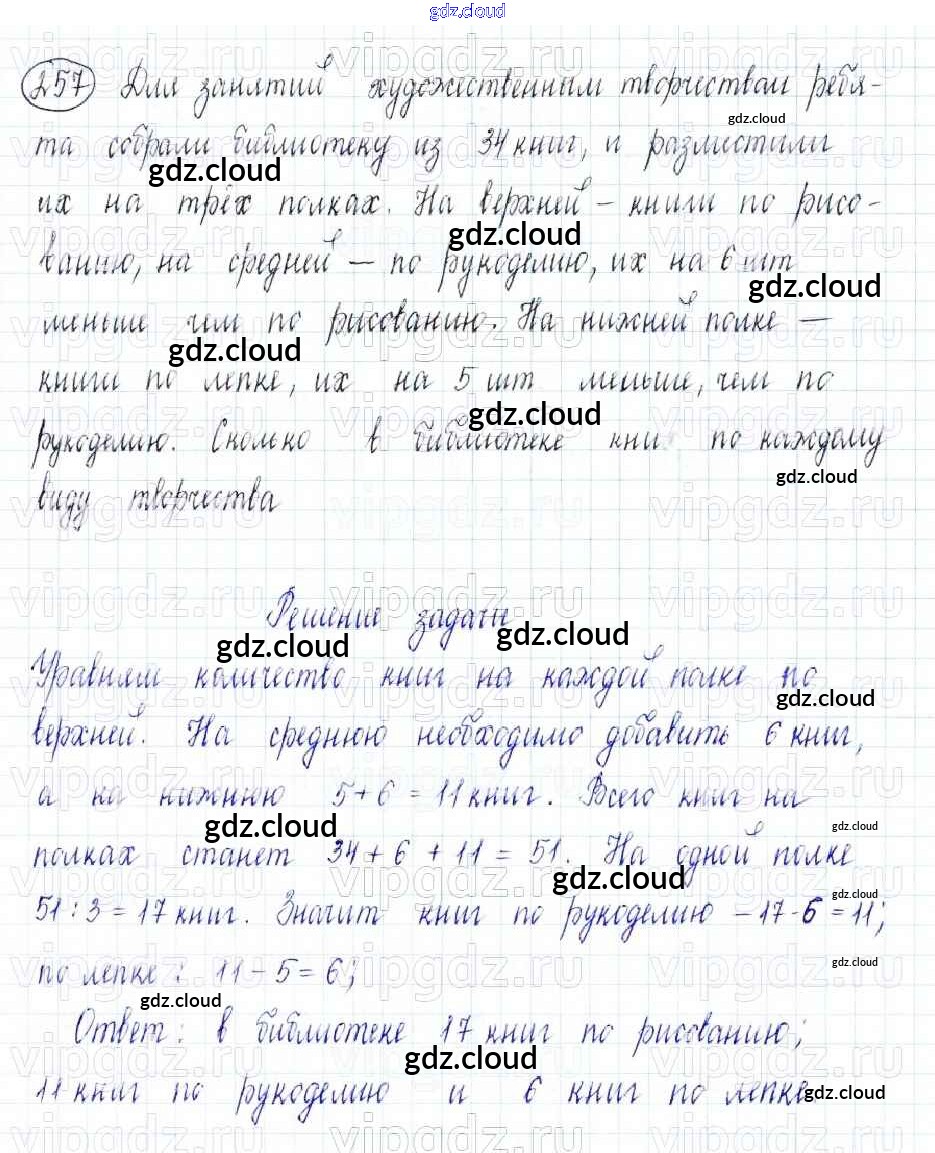 gdz.cloud
257 Для занятий художественным творчеством ребя-
gdz.cloud
та собрали библиотеку из 34 книг, и разместили
gdz.cloud
их на трёх полках. На верхней – книги по рисо-
gdz.cloud
ванию, на средней – по рукоделию, их на 6 шт
gdz.cloud
меньше чем по рисованию. На нижней полке –
gdz.cloud
книги по лепке, их на 5 шт меньше, чем по
gdz.cloud
рукоделию. Сколько в библиотеке книг по каждому
gdz.cloud
виду творчества
Решение задачи
gdz.cloud gdz.cloud
Уравняем количество книг на каждой полке по
gdz.cloud
верхней. На среднюю необходимо добавить 6 книг,
а на нижнюю 5+6 = 11 книг. Всего книг на
gdz.cloud gdz.cloud
полках станет 34 + 6 + 11 = 51. На одной полке
gdz.cloud gdz.cloud
51 : 3 = 17 книг. Значит книг по рукоделию – 17-6 = 11;
gdz.cloud
по лепке : 11 – 5 = 6;
gdz.cloud
Ответ: в библиотеке 17 книг по рисованию;
gdz.cloud
11 книг по рукоделию и 6 книг по лепке.
gdz.cloud
vipgdz.ru